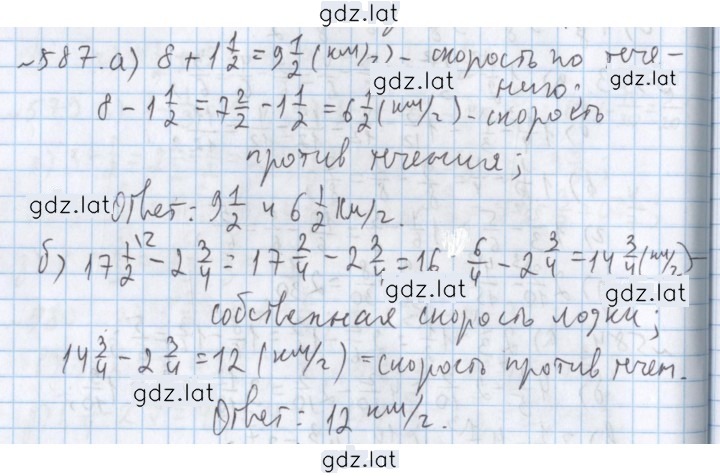 gdz.lat
№587. а) 8 + 1 1/2 = 9 1/2 (км/ч) - скорость по тече-
gdz.lat нию; gdz.lat
8 - 1 1/2 = 7 2/2 - 1 1/2 = 6 1/2 (км/ч) - скорость
против течения;
gdz.lat Ответ: 9 1/2 и 6 1/2 км/ч.
б) 17 1/2 \2 - 2 3/4 = 17 2/4 - 2 3/4 = 16 6/4 - 2 3/4 = 14 3/4 (км/ч) -
gdz.lat
собственная скорость лодки;
14 3/4 - 2 3/4 = 12 (км/ч) = скорость против течен.
gdz.lat
Ответ: 12 км/ч.
gdz.lat